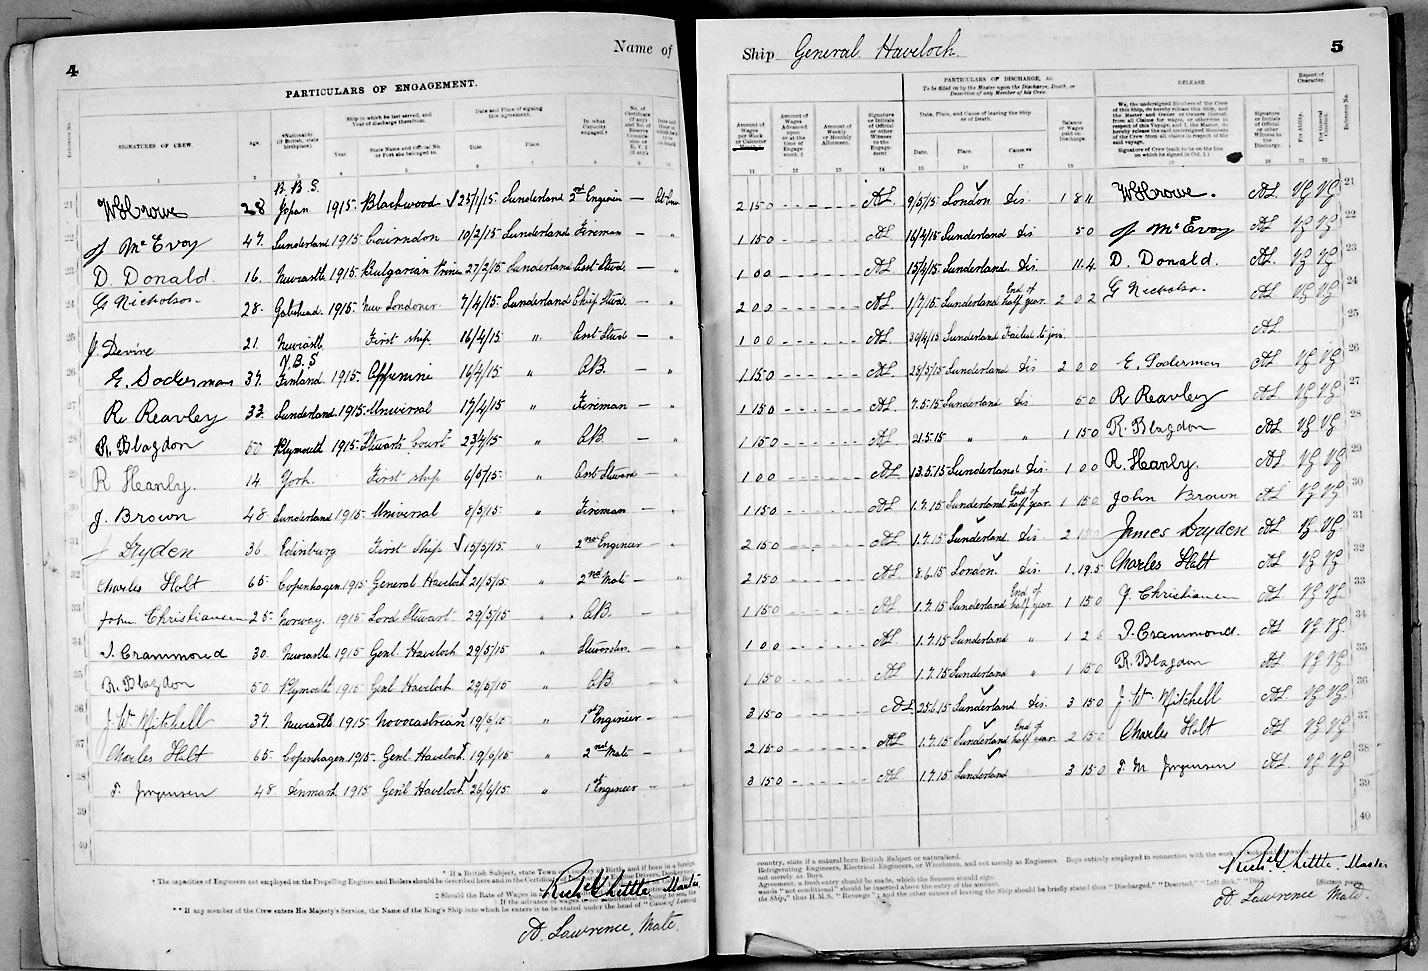 4
Name of
PARTICULARS OF ENGAGEMENT.
Reference No.
SIGNATURES OF CREW.
Age.
*Nationality (If British, state birthplace).
Ship in which he last served, and Year of discharge therefrom.
Year.
State Name and Official No. or Port she belonged to.
Date and Place of signing this Agreement.
Date.
Place.
In what Capacity engaged.
1 2 3 4 5 6 7 8 9 10
B. B. S.
21 W G Crowe 28 Japan 1915 Blackwood ✓ 25/1/15 Sunderland 2nd Engineer —
22 J McEvoy 47. Sunderland 1915 10/2/15 Sunderland Fireman — "
23 D. Donald 16. Newcastle 1915 Bulgarian Prince 27/2/15 Sunderland Asst Stwd. — "
24 G Nicholson 28. Gateshead. 1915 New Londoner 7/4/15 Sunderland Chief Stwd. — "
25 J. Devine 21 Newcastle First ship. 16/4/15 " Asst Stwd — "
N. B. S
26 E. Soderman 37. Finland 1915 Appenine 16/4/15 " A.B. — "
27 R. Reavley 33. Sunderland 1915 Universal 17/4/15 " Fireman — "
28 R. Blagdon 50 Plymouth 1915 Stewarts Court 23/4/15 " A.B. — "
29 R Heanly. 14 York. First ship 6/5/15 " Asst Steward — "
30 J. Brown 48. Sunderland 1915 Universal 8/5/15 " Fireman — "
31 J Dryden 36. Edinburg First Ship ✓ 15/5/15 " 2nd Engineer — "
32 Charles Holt 65. Copenhagen 1915 General Havelock 21/5/15 " 2nd Mate — "
33 John Christiansen 25. Norway. 1915 Lord Stewart 29/5/15 " A.B. — "
34 T. Crammond 30. Newcastle 1915 Genl. Havelock 29/5/15 " — "
35 R. Blagdon 50. Plymouth 1915 Genl Havelock. 29/5/15 " A.B. — "
36 J. W. Mitchell 37. Newcastle 1915 Novocastrian " 1st Engineer — "
37 Charles Holt 65. Copenhagen 1915. Genl. Havelock 19/6/15 " 2nd Mate — "
38 T. Jorgensen 48. Denmark 1915 Genl Havelock 26/6/15 " 1st Engineer — "
39
40
* If a British Subject, state Town
* The capacities of Engineers not employed on the Propelling Engines and Boilers should be described here and in the Certificate
** If any member of the Crew enters His Majesty's Service, the Name of the King's Ship into which he enters is to be stated under the head of "Cause of Leaving
Master
A. Lawrence, Mate.
Ship General Havelock. 5
PARTICULARS OF DISCHARGE, &c.
To be filled in by the Master upon the Discharge, Death, or Desertion of any Member of his Crew.
RELEASE.
Report of Character.
Amount of Wages per Week or Calendar Month.
Amount of Wages Advanced upon or at the time of Engagement.
Amount of Weekly or Monthly Allotment.
Signature or Initials of Official or other Witness to the Engagement
Date, Place, and Cause of leaving the Ship or of Death.
Date.
Place.
Cause.**
Balance of Wages paid on Discharge.
We, the undersigned Members of the Crew of this Ship, do hereby release this Ship, and the Master and Owner or Owners thereof, from all Claims for wages, or otherwise in respect of this Voyage, and I, the Master, do hereby release the undersigned Members of the Crew from all claims in respect of the said voyage.
Signature of Crew (each to be on the line on which he signed in Col. 1.)
Signature or Initials of Official or other Witness to the Discharge
For Ability.
For General Conduct.
Reference No.
11 12 13 14 15 16 17 18 19 20 21 22
2 15 0 AL 9/5/15 London Dis. 1 8 11 W G Crowe. AL VG VG 21
1 15 0 AL 16/4/15 Sunderland Dis 5 0 J McEvoy AL VG VG 22
1 0 0 AL 15/4/15 Sunderland. Dis. 11.4. D. Donald. AL. VG VG 23
2 0 0 AL 1/7/15 Sunderland End of half year. 2 0 2 G Nicholson. AL VG VG 24
1 0 0 AL. 30/4/15 Sunderland Failed to join. AL 25
1 15 0 AL 28/5/15 Sunderland Dis 2 0 0 E. Soderman AL VG VG 26
1 15 0 AL 7.5.15 Sunderland Dis 5 0 R Reavley AL VG VG 27
1 15 0 AL 21.5.15 " " 1 15 0 R. Blagdon AL VG VG 28
1 0 0 AL 13.5.15 Sunderland Dis. 1 0 0 R. Heanly. AL VG VG 29
1 15 0 AL 1.7.15 Sunderland End of half year. 1 15 0 John Brown AL VG VG 30
2 15 0 AL. 1.7.15 Sunderland Dis James Dryden AL VG VG 31
2 15 0 AL 8.6.15 London Dis. 1.19.5 Charles Holt AL VG VG 32
1 15 0 AL 1.7.15 Sunderland End of half year 1 15 0 J. Christiansen AL VG VG 33
1 0 0 AL 1.7.15 Sunderland " T. Crammond. AL VG VG 34
1 15 0 AL 1.7.15 Sunderland " 1 15 0 R. Blagdon AL VG VG 35
3 15 0 AL 25.6.15 Sunderland Dis. 3 15 0 J. W Mitchell AL VG VG 36
2 15 0 AL 1.7.15 Sunderland End of half year. 2 15 0 Charles Holt AL VG VG 37
3 15 0 AL 1.7.15 Sunderland 3 15 0 T. M Jorgensen AL VG VG 38
39
40
country, state if a natural born British Subject or naturalised.
Refrigerating Engineers, Electrical Engineers, or Winchmen, and not merely as Engineers. Boys entirely employed in connection with the work
not merely as Boys.
Agreement, a fresh entry should be made, which the Seaman should sign.
words "not conditional" should be inserted above the entry of the amount.
the Ship," thus H.M.S. "Revenge"; and the other causes of leaving the Ship should be briefly stated thus "Discharged," "Deserted," "Left Sick," "Died,"
Master
A. Lawrence Mate.